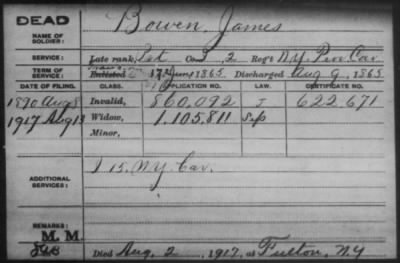 DEAD
NAME OF SOLDIER:
Bowen, James
SERVICE:
Late rank, Pvt Co 2 Reg't N.Y. Prov Cav
TERM OF SERVICE:
Enlisted 17 June 1865. Discharged Aug 9, 1865
DATE OF FILING. CLASS. APPLICATION NO. LAW. CERTIFICATE NO.
1890 Aug 8 Invalid, 860,092 J 622,671
1917 Aug 13 Widow, 1,105,811 Sep
Minor,
ADDITIONAL SERVICES:
I 15. N.Y. Cav.
REMARKS:
M. M.
Died Aug. 2, 1917, at Fulton, N.Y